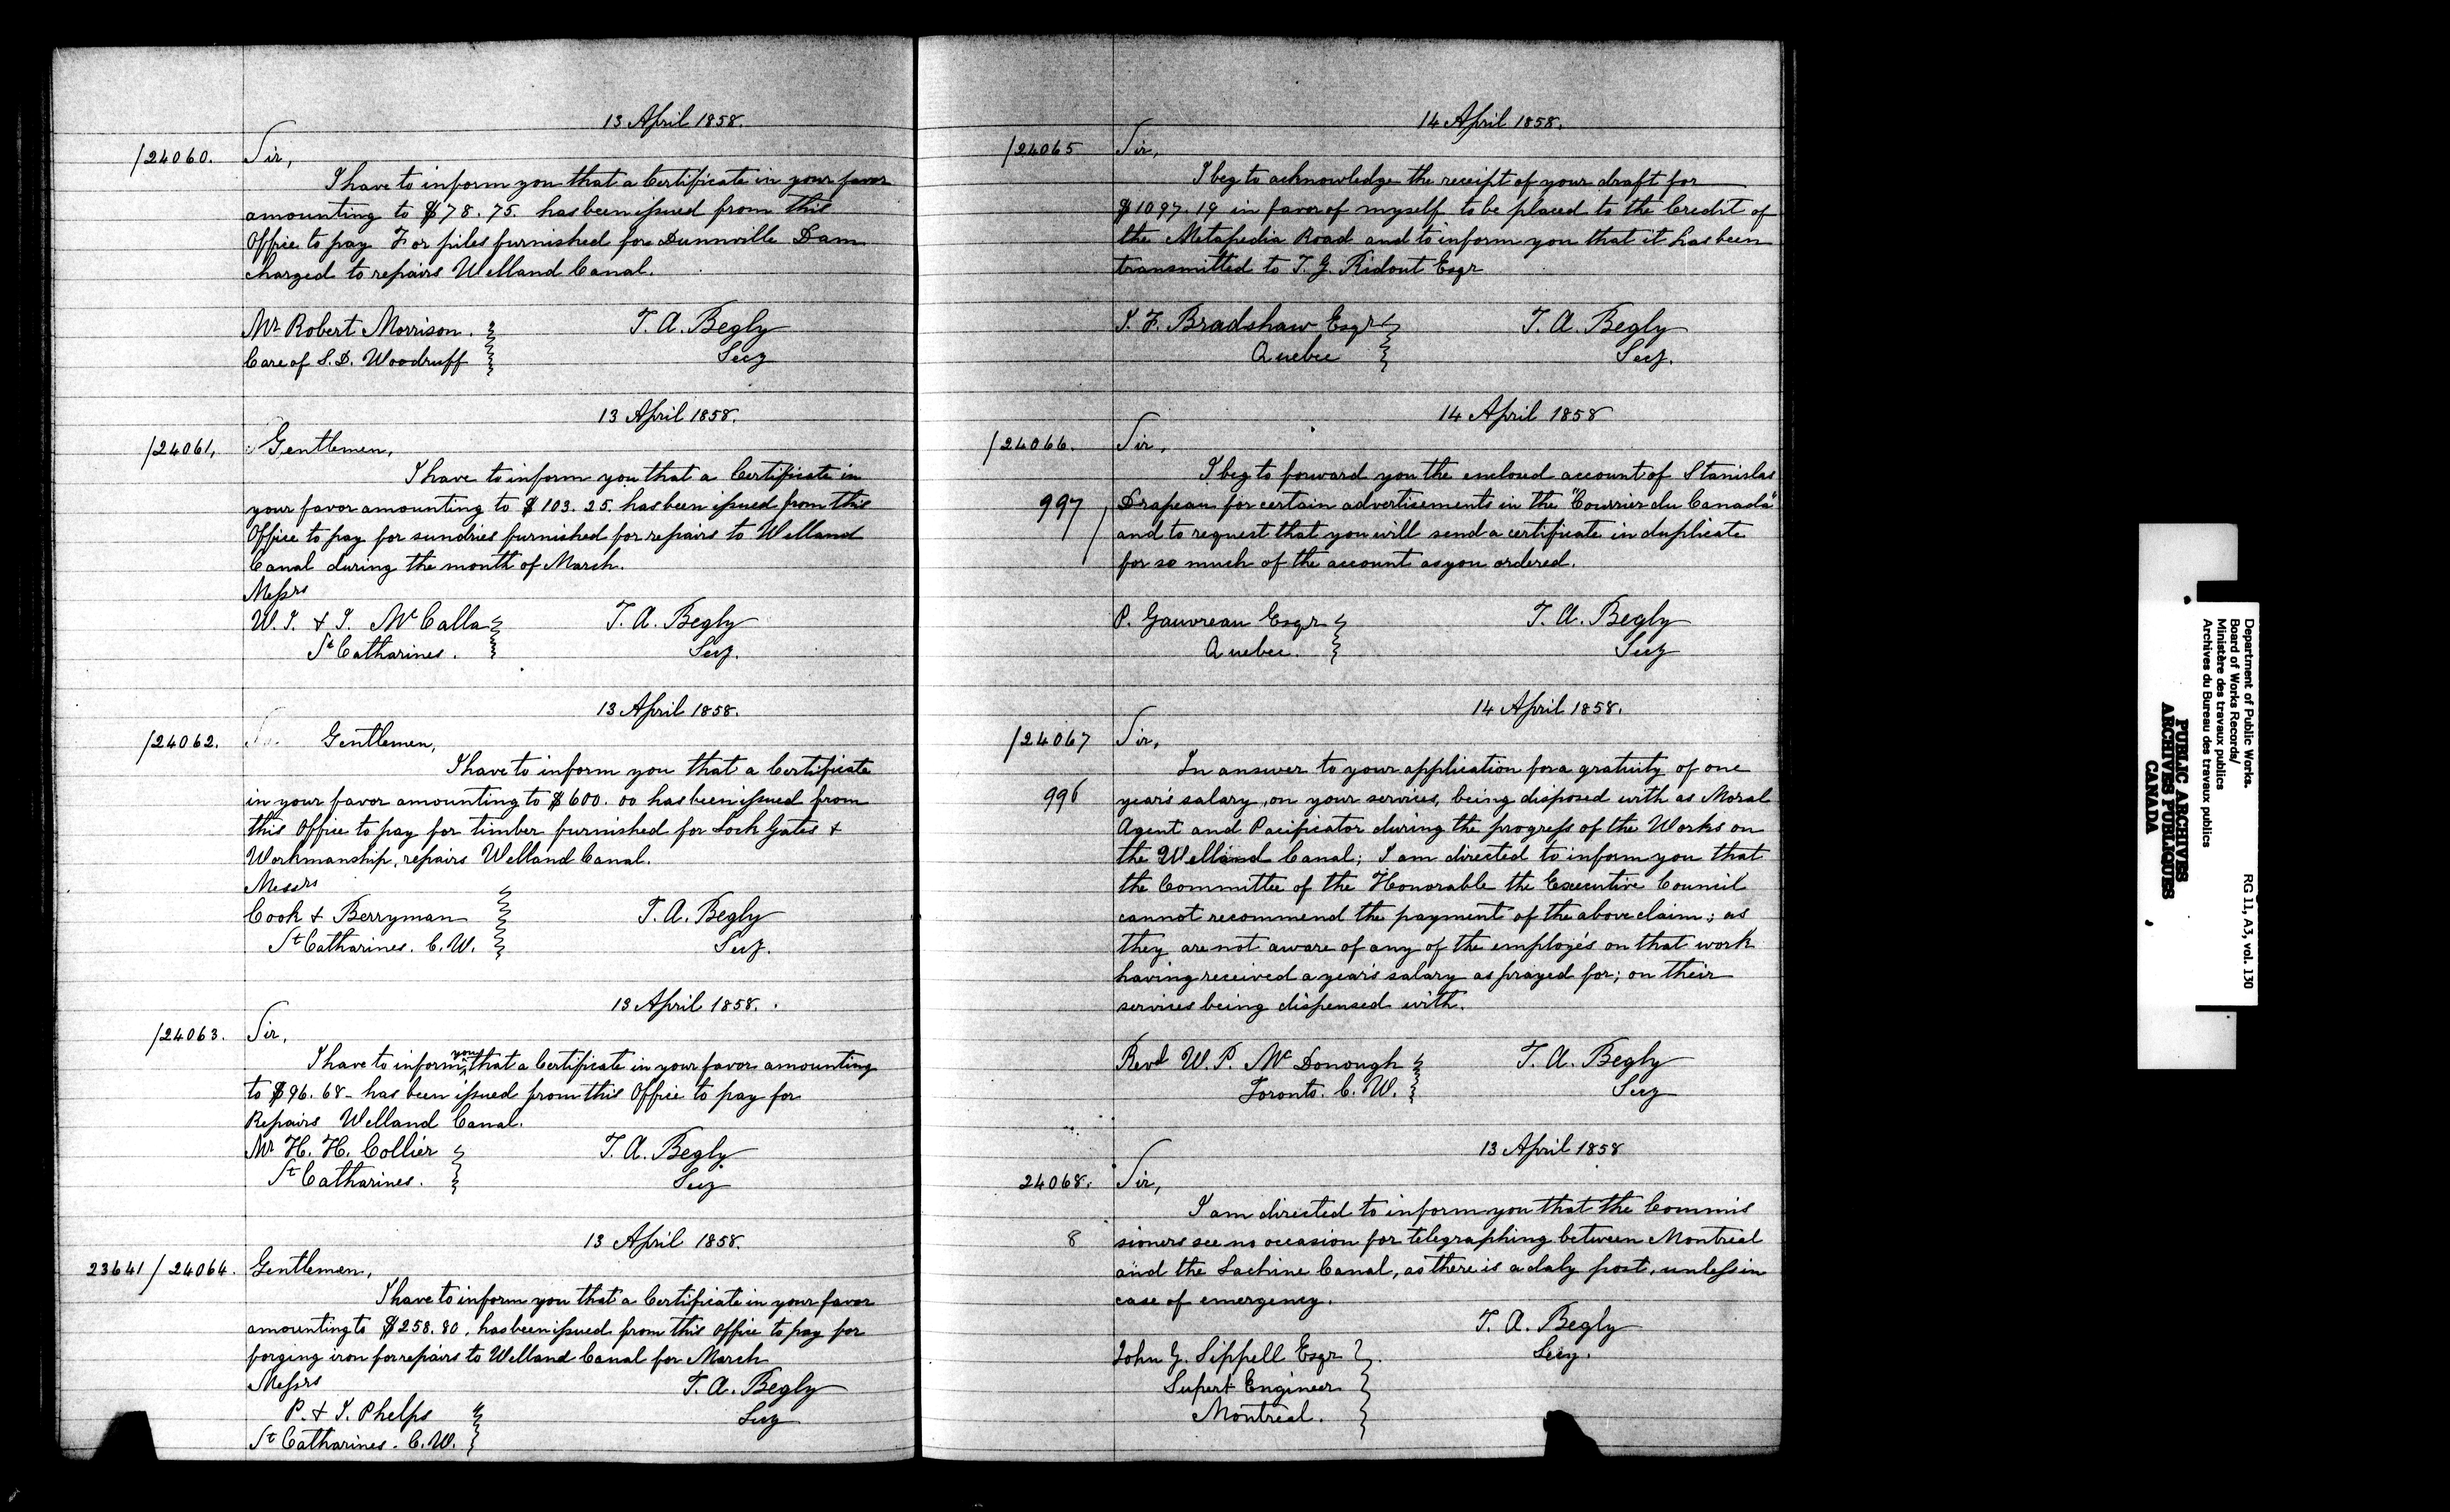 13 April 1858.
/24060. Sir,
I have to inform you that a Certificate in your favor
amounting to $78.75. has been issued from this
Office to pay For piles furnished for Dunnville Dam
charged to repairs Welland Canal.
Mr Robert Morrison. T. A. Begly
Care of S. D. Woodruff Secy
13 April 1858.
/24061, Gentlemen,
I have to inform you that a Certificate in
your favor amounting to $103.25. has been issued from this
Office to pay for sundries furnished for repairs to Welland
Canal during the month of March.
Messrs
W. J. & J. McCalla T. A. Begly
St Catharines. Secy.
13 April 1858.
/24062. Gentlemen,
I have to inform you that a Certificate
in your favor amounting to $600.00 has been issued from
this Office to pay for timber furnished for Lock Gates &
Workmanship, repairs Welland Canal.
Messrs
Cook & Berryman T. A. Begly
St Catharines. C. W. Secy.
13 April 1858.
/24063. Sir,
I have to inform you that a Certificate in your favor amounting
to $96.68- has been issued from this Office to pay for
Repairs Welland Canal.
Mr H. H. Collier T. A. Begly
St Catharines. Secy
13 April 1858.
23641/24064. Gentlemen,
I have to inform you that a Certificate in your favor
amounting to $258.80, has been issued from this Office to pay for
forging iron for repairs to Welland Canal for March
Messrs T. A. Begly
P. & J. Phelps Secy
St Catharines. C. W.
14 April 1858.
/24065 Sir,
I beg to acknowledge the receipt of your draft for
$1097.19 in favor of myself to be placed to the Credit of
the Metapedia Road and to inform you that it has been
transmitted to T. G. Ridout Esqr
J. F. Bradshaw Esqr T. A. Begly
Quebec Secy.
14 April 1858
/24066. Sir,
I beg to forward you the enclosed account of Stanislas
997 Drapeau for certain advertisements in the "Courrier du Canada"
and to request that you will send a certificate in duplicate
for so much of the account as you ordered.
P. Gauvreau Esqr T. A. Begly
Quebec. Secy
14 April 1858.
/24067 Sir,
In answer to your application for a gratuity of one
996 year's salary, on your services, being disposed with as Moral
Agent and Pacificator during the progress of the Works on
the Welland Canal; I am directed to inform you that
the Committee of the Honorable the Executive Council
cannot recommend the payment of the above claim; as
they are not aware of any of the employés on that work
having received a year's salary as prayed for; on their
services being dispensed with.
Revd W. P. McDonough T. A. Begly
Toronto. C. W. Secy
13 April 1858
24068. Sir,
I am directed to inform you that the Commis
8 sioners see no occasion for telegraphing between Montreal
and the Lachine Canal, as there is a daly post, unless in
case of emergency.
T. A. Begly
John G. Sippell Esqr Secy.
Supert Engineer
Montreal.
Department of Public Works.
Board of Works Records/
Ministère des travaux publics
Archives du Bureau des travaux publics
RG 11, A3, vol. 130
PUBLIC ARCHIVES
ARCHIVES PUBLIQUES
CANADA